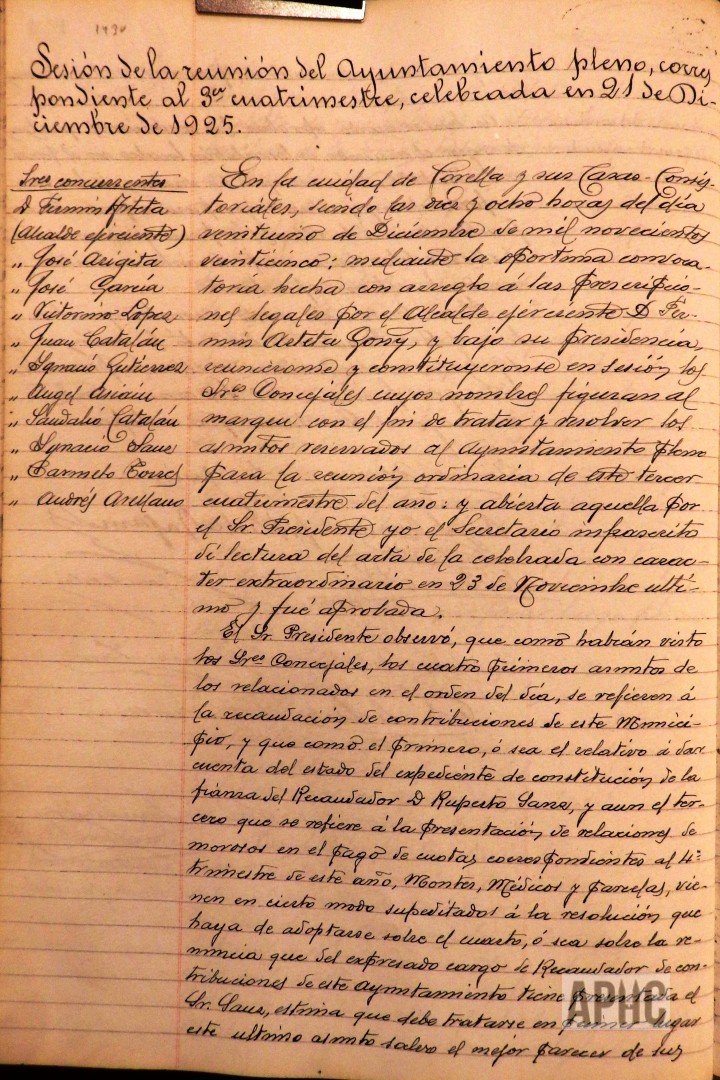 Sesión de la reunión del Ayuntamiento pleno, corres
pondiente al 3er cuatrimestre, celebrada en 21 de Di-
ciembre de 1925.
Sres concurrentes
D Fermin Arteta
(Alcalde ejerciente)
" José Arigita
" José García
" Victorino López
" Juan Catalán
" Ignacio Gutierrez
" Angel Asiain
" Sandalio Catalán
" Ignacio Sanz
" Carmelo Torres
" Andrés Arellano
En la ciudad de Corella y sus Casas-Consis-
toriales, siendo las diez y ocho horas del día
veintiuno de Diciembre de mil novecientos
veinticinco; mediante la oportuna convoca-
toria hecha con arreglo á las prescripcio-
nes legales por el Alcalde ejerciente D Fer-
min Arteta Goñy, y bajo su presidencia,
reunieronse y constituyeronse en sesión los
Sres Concejales cuyos nombres figuran al
margen con el fin de tratar y resolver los
asuntos reservados al Ayuntamiento pleno
para la reunión ordinaria de este tercer
cuatrimestre del año; y abierta aquella por
el Sr. Presidente yo el Secretario infrascrito
di lectura del acta de la celebrada con carac-
ter extraordinario en 23 de Noviembre ulti-
mo y fué aprobada.
El Sr. Presidente observó, que como habrán visto
los Sres Concejales, los cuatro primeros asuntos de
los relacionados en el orden del día, se refieren á
la recaudación de contribuciones de este Munici-
pio, y que como el primero, ó sea el relativo á dar
cuenta del estado del expediente de constitución de la
fianza del Recaudador D Ruperto Sanz, y aun el ter-
cero que se refiere á la presentación de relaciones de
morosos en el pago de cuotas correspondientes al 4º
trimestre de este año, Montes, Médicos y parcelas, vie-
nen en cierto modo supeditados á la resolución que
haya de adoptarse sobre el cuarto, ó sea sobre la re-
nuncia que del expresado cargo de Recaudador de con-
tribuciones de este Ayuntamiento tiene presentada el
Sr. Sanz, estima que debe tratarse en primer lugar
este ultimo asunto salvo el mejor parecer de sus
APHC